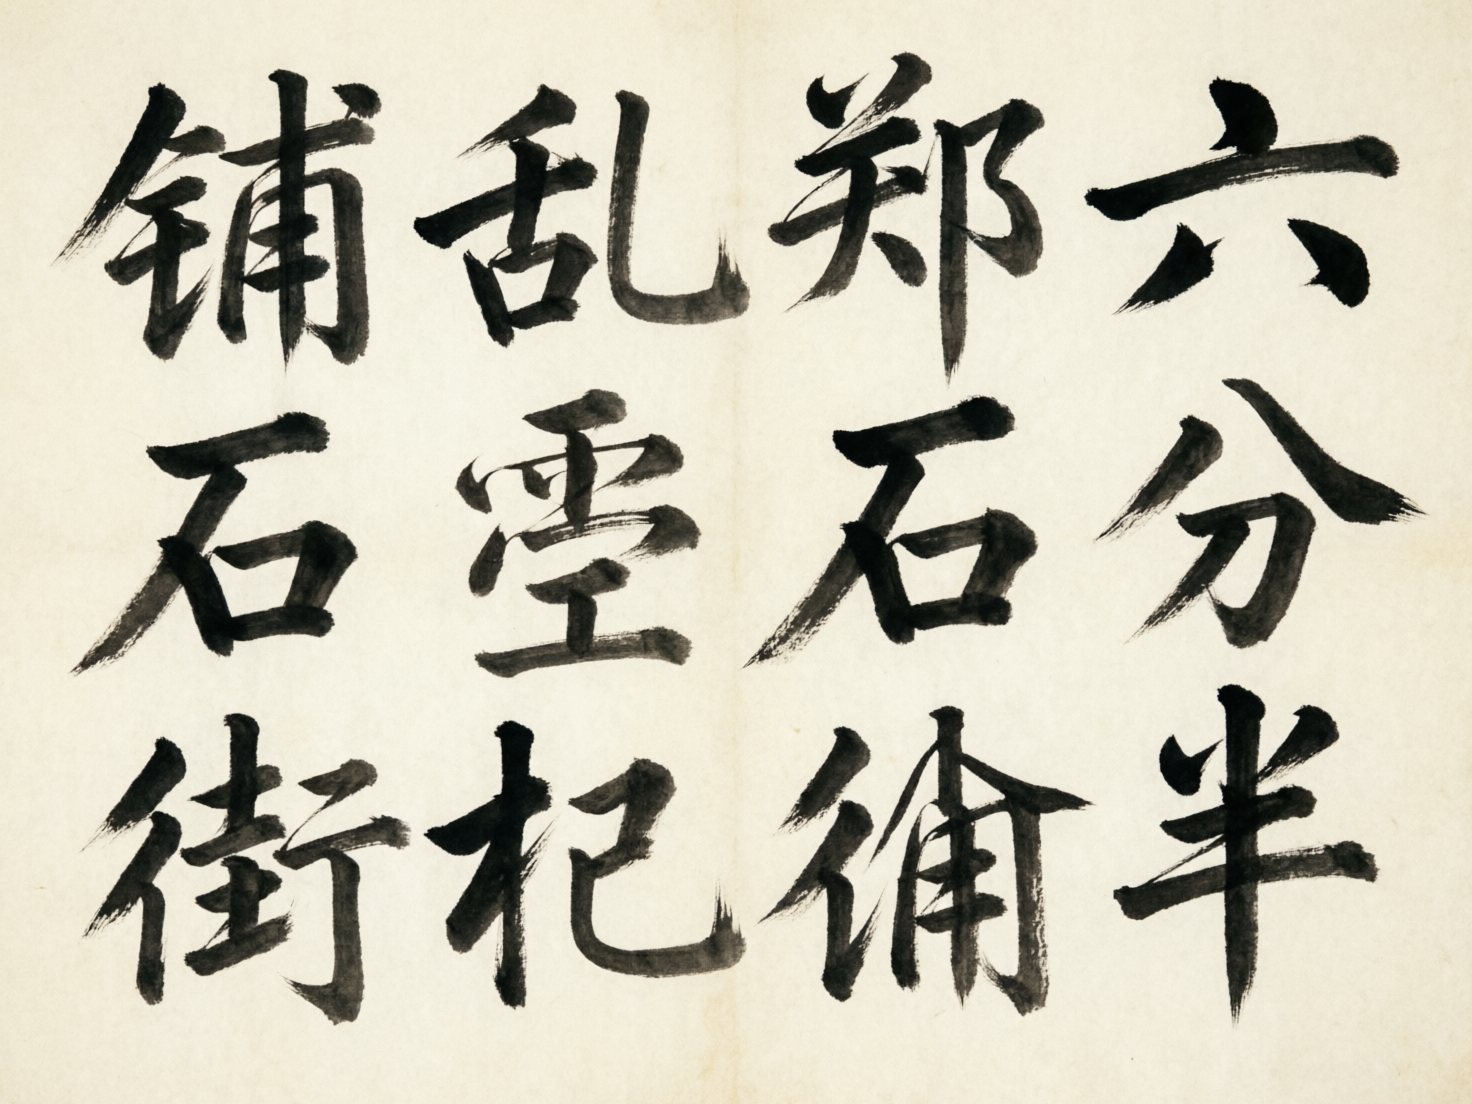 六分半
郑石
乱杞
铺石街